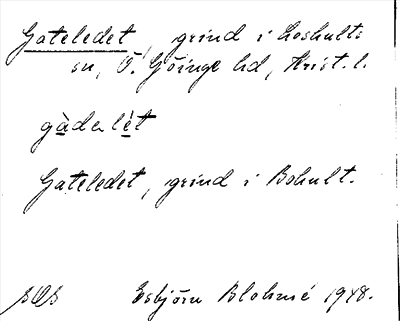 Gateledet, grind i Loshults
sn, Ö. Göinge hd, Krist. l.
gàdalèt
Gateledet, grind i Bohult.
Esbjörn Blohmé 1948.